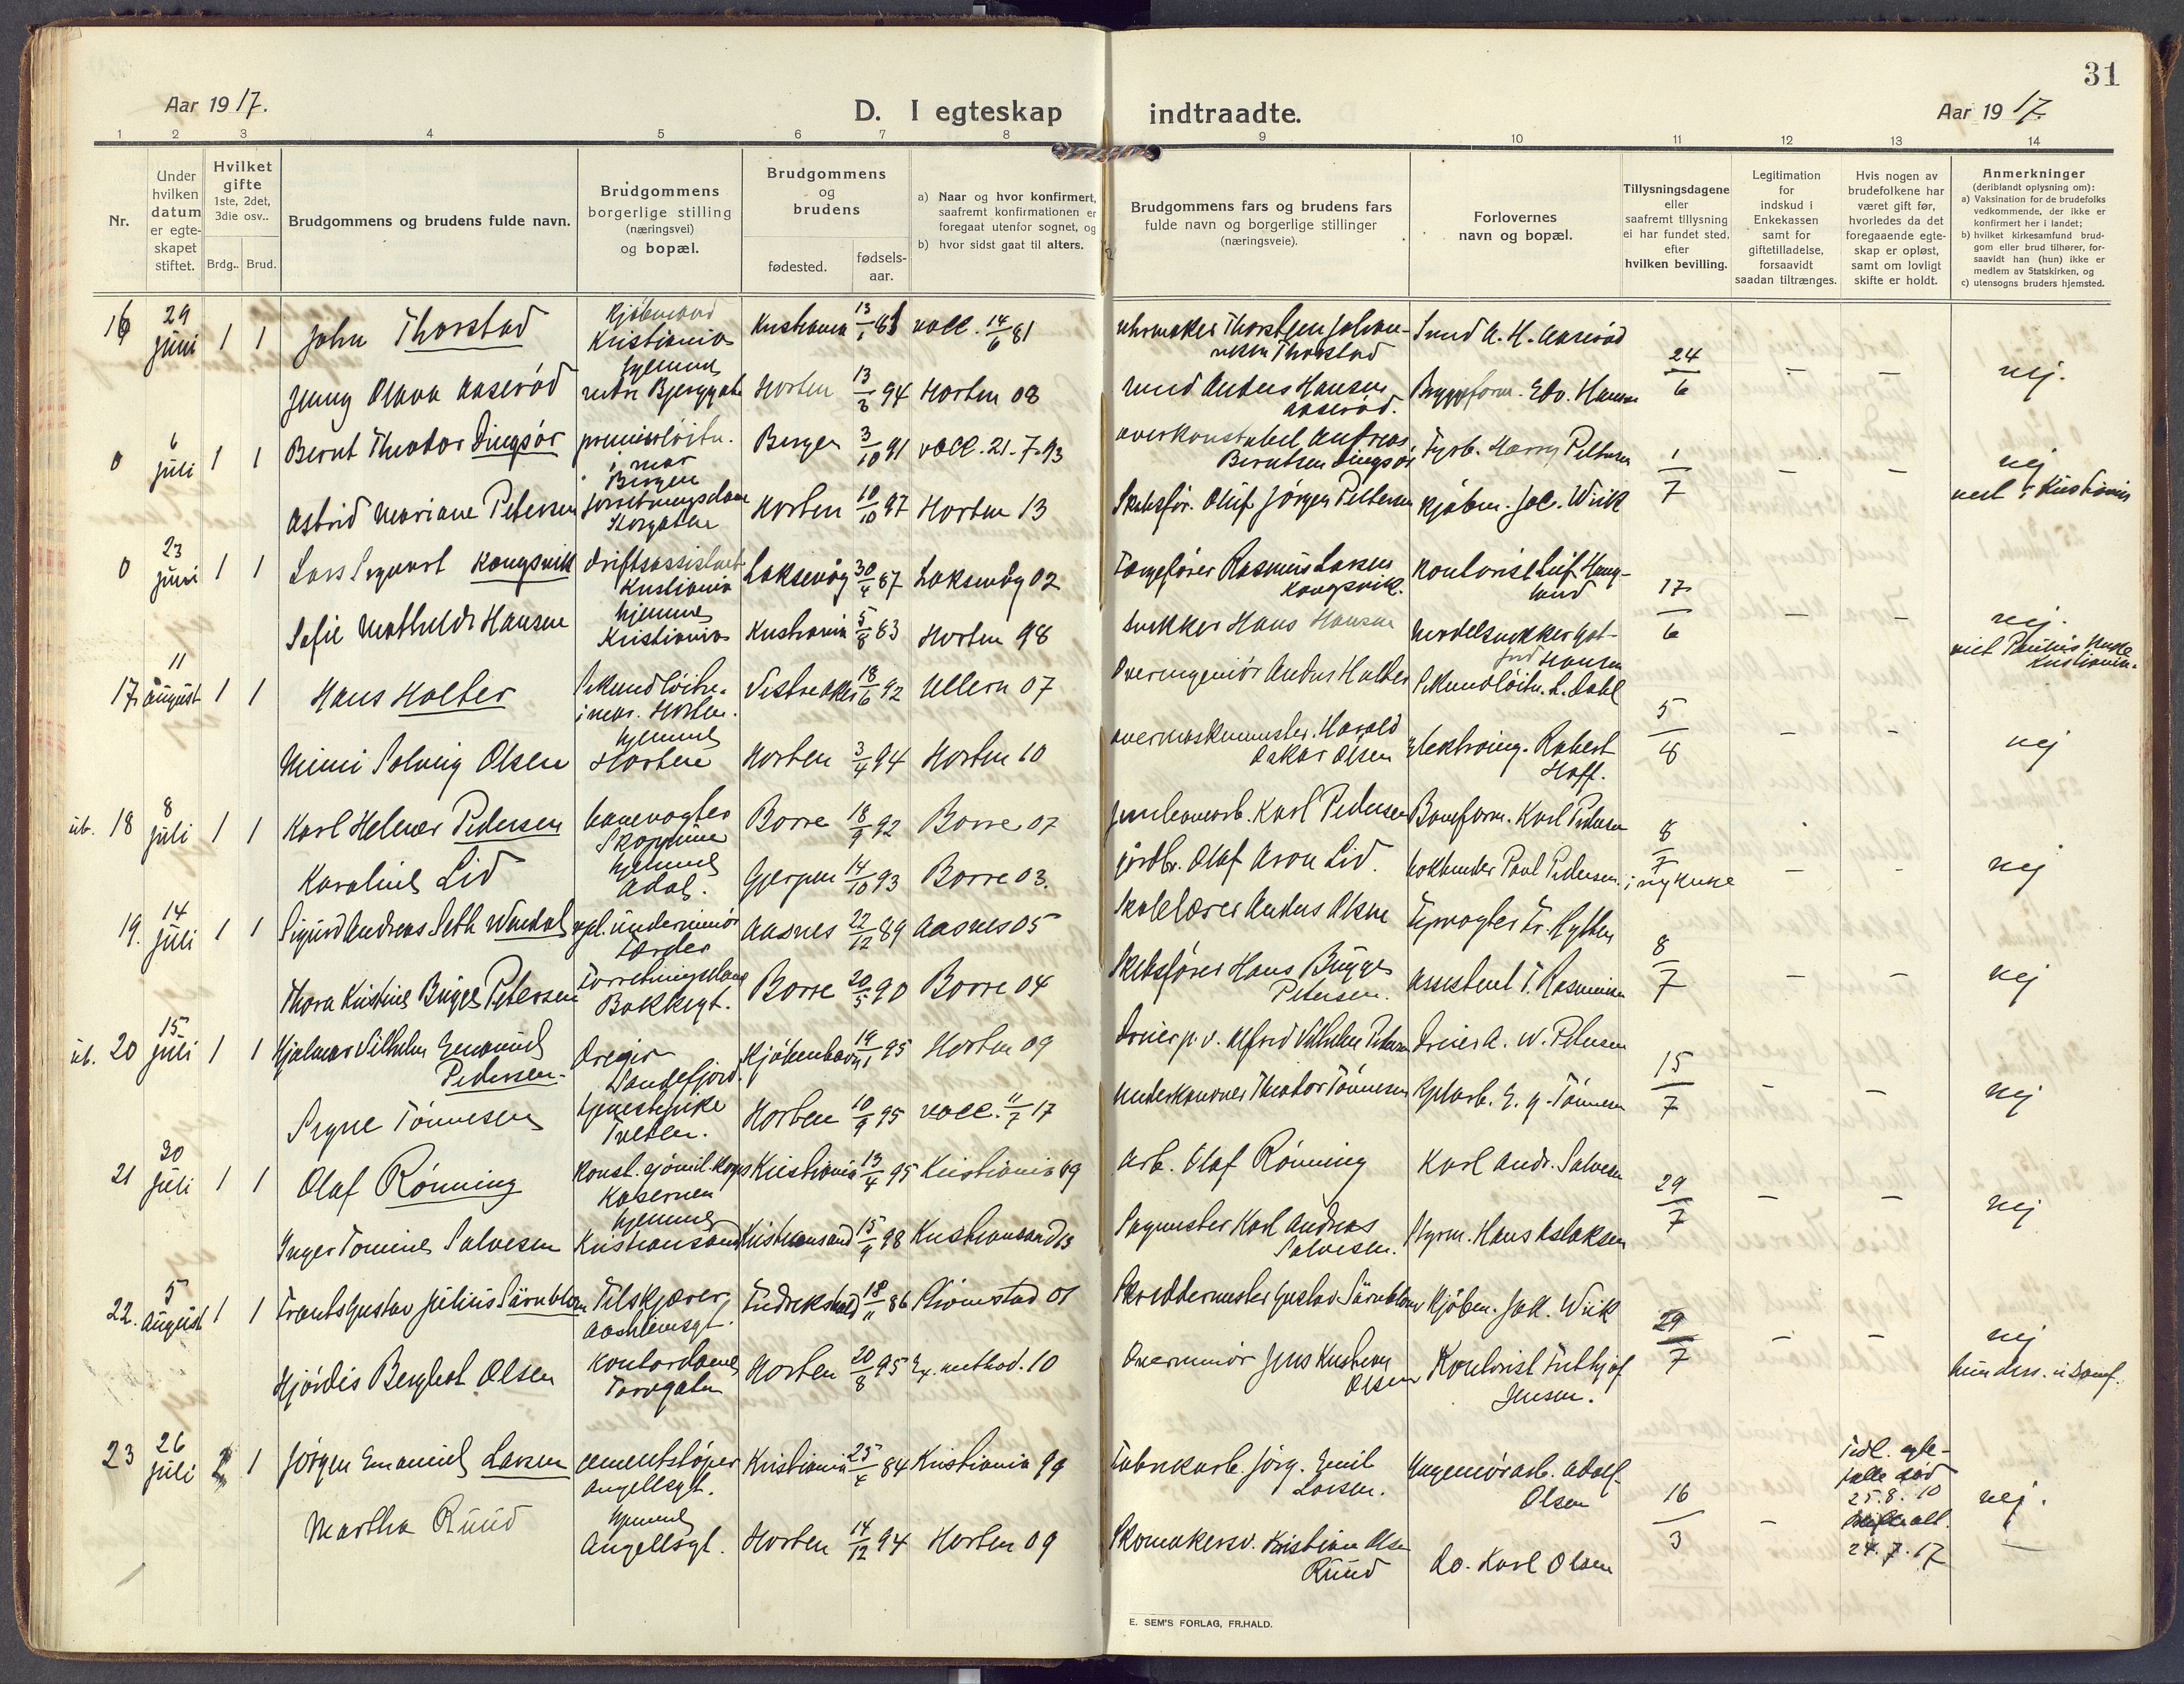 31
Aar 1917.
D. I egteskap indtraadte.
Aar 1917.
1 2 3 4 5 6 7 8 9 10 11 12 13 14
Nr.
Under hvilken datum er egte-skapet stiftet.
Hvilket gifte 1ste, 2det, 3die osv..
Brdg.. Brud.
Brudgommens og brudens fulde navn.
Brudgommens borgerlige stilling (næringsvei) og bopæl.
Brudgommens og brudens
fødested.
fødsels-aar.
a) Naar og hvor konfirmert, saafremt konfirmationen er foregaat utenfor sognet, og
b) hvor sidst gaat til alters.
Brudgommens fars og brudens fars fulde navn og borgerlige stillinger (næringsveie).
Forlovernes navn og bopæl.
Tillysningsdagene eller saafremt tillysning ei har fundet sted, efter hvilken bevilling.
Legitimation for indskud i Enkekassen samt for giftetilladelse, forsaavidt saadan tiltrænges.
Hvis nogen av brudefolkene har været gift før, hvorledes da det foregaaende egte-skap er opløst, samt om lovligt skifte er holdt.
Anmerkninger (deriblandt oplysning om):
a) Vaksination for de brudefolks vedkommende, der ikke er konfirmert her i landet;
b) hvilket kirkesamfund brud-gom eller brud tilhører, for-saavidt han (hun) ikke er medlem av Statskirken, og
c) utensogns bruders hjemsted.
16 29 juni 1 1 John Thorstad Kjøbmand Kristiania Kristiania vacc. 14/6 81 Thorstad A. H. Aaserød
Jenny Olava Aaserød hjemme Horten 13/3 94 Horten 08 Anders Hansen Aaserød. Edv. Hansen 24/6 – – nej.
0 6 juli 1 1 Bernt Theodor Dingsør premierløitn. i mar. Bergen Bergen 3/10 91 vacc. 21-7-93 overkonstabel Andreas Berntsen Dingsør Fyrb. Harry Pettersen
Astrid Mariane Petersen forretningsdame Storgaten Horten 10/10 97 Horten 13 Oluf Jørgen Pettersen kjøbm. Jac. Wiik 1/7 – – nej viet i Kristiania
0 23 juni 1 1 Lars Sigvart Kongsvik driftsassistent Kristiania Laksevåg 30/4 87 Laksevåg 02 Rasmus Larsen Kongsvik. kontorist Leif Haug-lund
Sofie Mathilde Hansen hjemme Kristiania Kristiania 5/8 83 Horten 98 snekker Hans Hansen Hansen 17/6 – – nej. viet Paulus kirke Kristiania.
17 11 august 1 1 Hans Holter Sekundløitn. i mar. Horten. Vestre Aker 18/6 92 Ullern 07 Overingeniør Anders Holter Sekundløitn. L. Dahl
Mimi Solveig Olsen hjemme Horten Horten 3/4 94 Horten 10 Harald Oskar Olsen Elektroing. Robert Hoff. 5/8 – – nej
ub. 18 8 juli 1 1 Karl Helmer Pedersen banevogter Skoppum Borre 18/9 92 Borre 07 Karl Pedersen Baneform. Karl Pedersen
Karoline Lid hjemme Adal. Gjerpen 14/10 93 Borre 03. jordbr. Olaf Aron Lid. bokbinder Paul Pedersen. 8/7 i Nykirke – – nej
19. 14 juli 1 1 Sigurd Andreas Seth underminør Aasnes 22/12 89 Aasnes 05 Skolelærer Anders Olsen Fyrvogter Fr. Hytten
Thora Kristine Brügge Petersen Forretningsdame Bakkegt. Borre 20/5 90 Borre 04 Hans Brügge Petersen. assistent T. Rasmussen 8/7 – – nej
ub. 20 15 juli 1 1 Hjalmar Vilhelm Emanuel Pedersen. Sandefjord. Kjøbenhavn 19/1 95 Horten 09 Alfred Vilhelm Pedersen A. W. Petersen
Signe Tønnesen tjenestepike Horten 10/9 95 vacc. 11/7 17 Underkanoner Theodor Tønnesen Tønnesen 15/7 – – nej
21 20 juli 1 1 Olaf Rønning konst. sjømil. korps Kasernen Kristiania 13/4 95 Kristiania 09 arb. Olaf Rønning Karl Andr. Salvesen
Inger Tomine Salvesen hjemme Kristiansand Kristiansand 15/9 98 Kristiansand 13 Sagmester Karl Andreas Salvesen. Styrm. Hans Aslaksen 29/7 – – nej
22. 5 august 1 1 Frants Gustav Julius Särnblom Tilskjærer Fredrikshald 18/11 86 Strömstad 01 Skræddermester Gustav Särnblom Kjøbm. Jak. Wiik
Hjørdis Bergljot Olsen kontordame Torvgaten Horten 20/8 95 method. 10 Overminør Jens Kristian Olsen Kontorist Frithjof Jensen. 29/7 – – nej
23 26 juli 2 1 Jørgen Emanuel Larsen cementstøper Angellsgt. Kristiania 25/4 84 Kristiania 99 Fabrikarb. Jørg. Emil Larsen. Adolf Olsen
Martha Ruud hjemme Angellsgt. Horten 14/12 94 Horten 09 Skomakersv. Kristian Olsen Ruud do. Karl Olsen 16/3 – død 25.8.10 24.7.17 nej.
E. SEM'S FORLAG, FR.HALD.